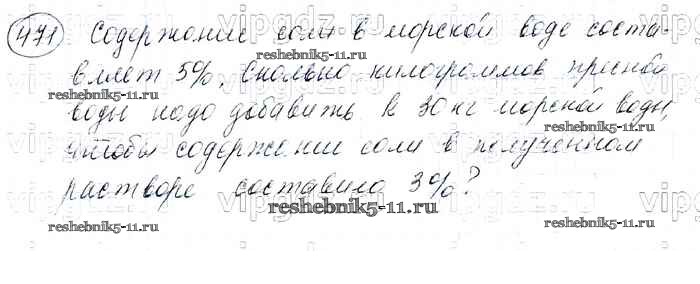 471 Содержание соли в морской воде соста-
вляет 5%. Сколько килограммов пресной
воды надо добавить к 30 кг морской воды,
чтобы содержание соли в полученном
растворе составило 3%?
reshebnik5-11.ru
reshebnik5-11.ru
reshebnik5-11.ru
reshebnik5-11.ru
reshebnik5-11.ru
reshebnik5-11.ru
reshebnik5-11.ru